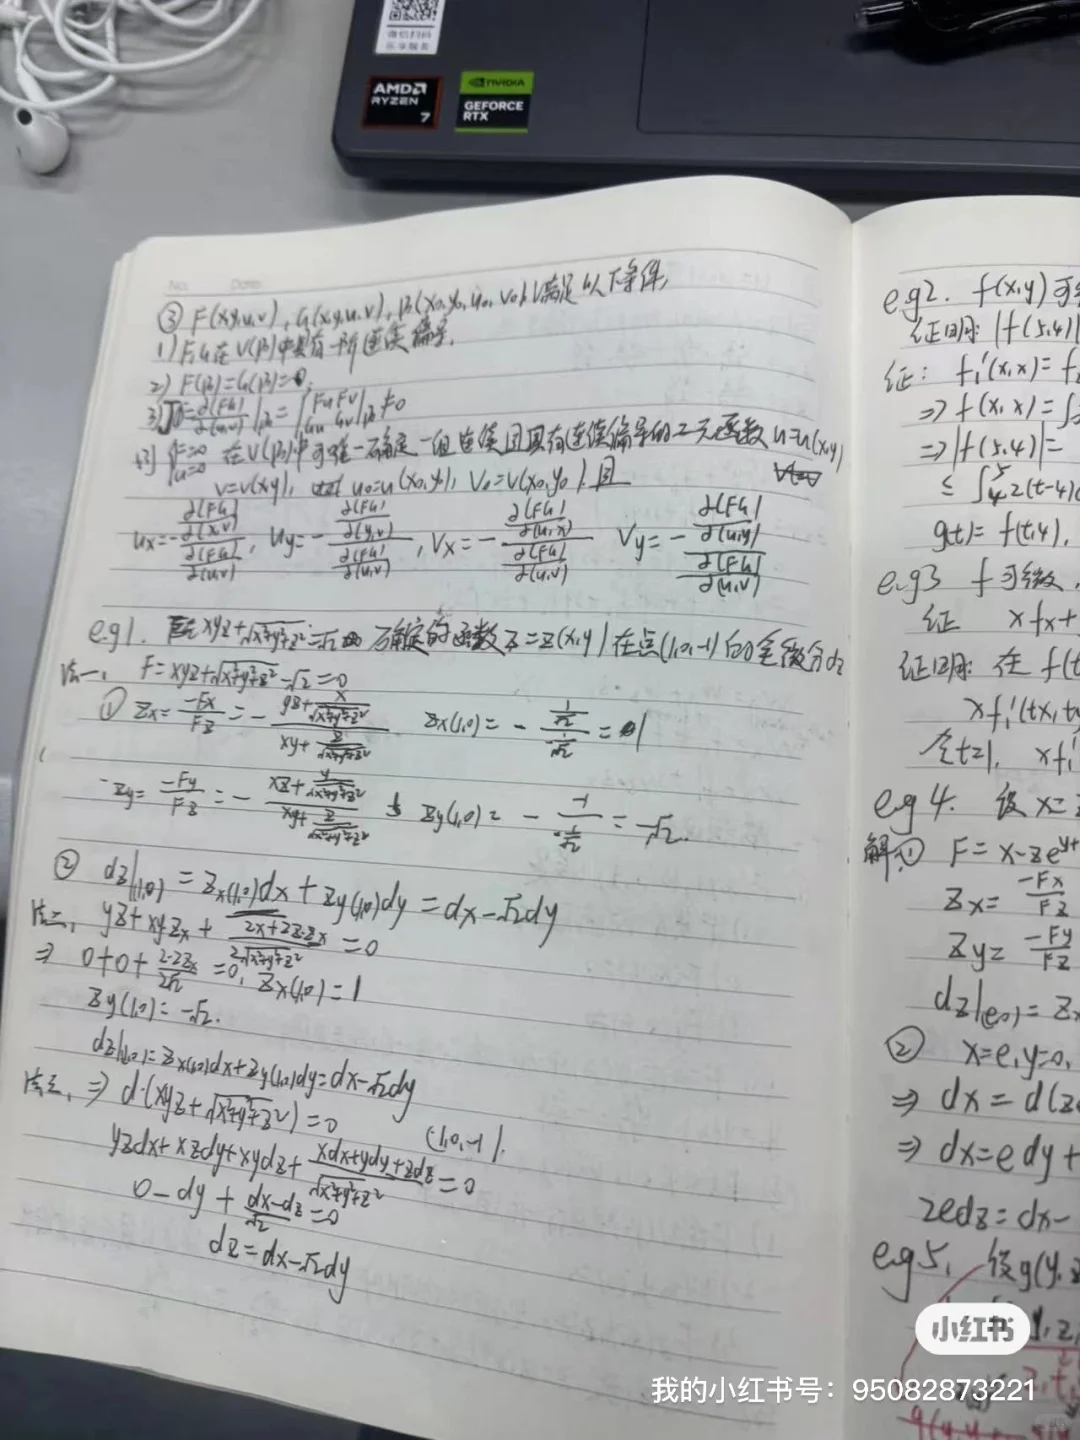 微信扫码
AMD
RYZEN
7
NVIDIA
GEFORCE
RTX
No. Date
③ F(x,y,u,v), G(x,y,u,v), P0(x0,y0,u0,v0)满足以下条件,
1) F,G在V(P0)中具有一阶连续偏导,
2) F(P0)=G(P0)=0,
3) J0=∂(F,G)/∂(u,v)|P0=|Fu Fv Gu Gv|P0≠0
在V(P0)中可唯一确定一组连续且具有连续偏导的二元函数u=u(x,y)
v=v(x,y), u0=u(x0,y0), V0=V(x0,y0).且
ux=-∂(F,G)/∂(x,v) / ∂(F,G)/∂(u,v), uy=-∂(F,G)/∂(y,v) / ∂(F,G)/∂(u,v), Vx=-∂(F,G)/∂(u,x) / ∂(F,G)/∂(u,v) Vy=-∂(F,G)/∂(u,y) / ∂(F,G)/∂(u,v)
e.g1. xyz+√x²+y²+z²=√2 确定的函数z=z(x,y)在点(1,0,-1)的全微分dz
法一, F=xyz+√x²+y²+z²-√2=0
① Zx=-Fx/Fz=-(yz+x/√x²+y²+z²)/(xy+z/√x²+y²+z²) Zx(1,0)=-(1/√2)/(-1/√2)=1
Zy=-Fy/Fz=-(xz+y/√x²+y²+z²)/(xy+z/√x²+y²+z²) Zy(1,0)=-(-1)/(-1/√2)=-√2.
② dz|(1,0)=Zx(1,0)dx+Zy(1,0)dy=dx-√2dy
法二, yz+xyzx+(2x+2z·zx)/(2√x²+y²+z²)=0
⇒ 0+0+(2-2Zx)/(2√2)=0, Zx(1,0)=1
Zy(1,0)=-√2.
dz|(1,0)=Zx(1,0)dx+Zy(1,0)dy=dx-√2dy
法三, ⇒ d(xyz+√x²+y²+z²)=0
(1,0,-1).
yzdx+xzdy+xydz+(xdx+ydy+zdz)/√x²+y²+z²=0
0-dy+(dx-dz)/√2=0
dz=dx-√2dy
e.g2. f(x,y)可
证明: |f(5,4)|
证: f1'(x,x)=f
⇒f(x,x)=∫
⇒|f(5,4)|=
≤∫4^5 2(t-4)d
g(t)=f(t,4),
e.g3 f可微,
证 xfx+
证明: 在f(t
xf1'(tx,ty
令t=1, xf1'
e.g4. 设x=z
解:① F=x-ze^y+
Zx=-Fx/Fz
Zy=-Fy/Fz
dz|(e,0)=Zx
② x=e,y=0,
⇒ dx=d(ze
⇒ dx=edy+
2edz=dx-
e.g5, 设g(y,z
小红书
我的小红书号：95082873221